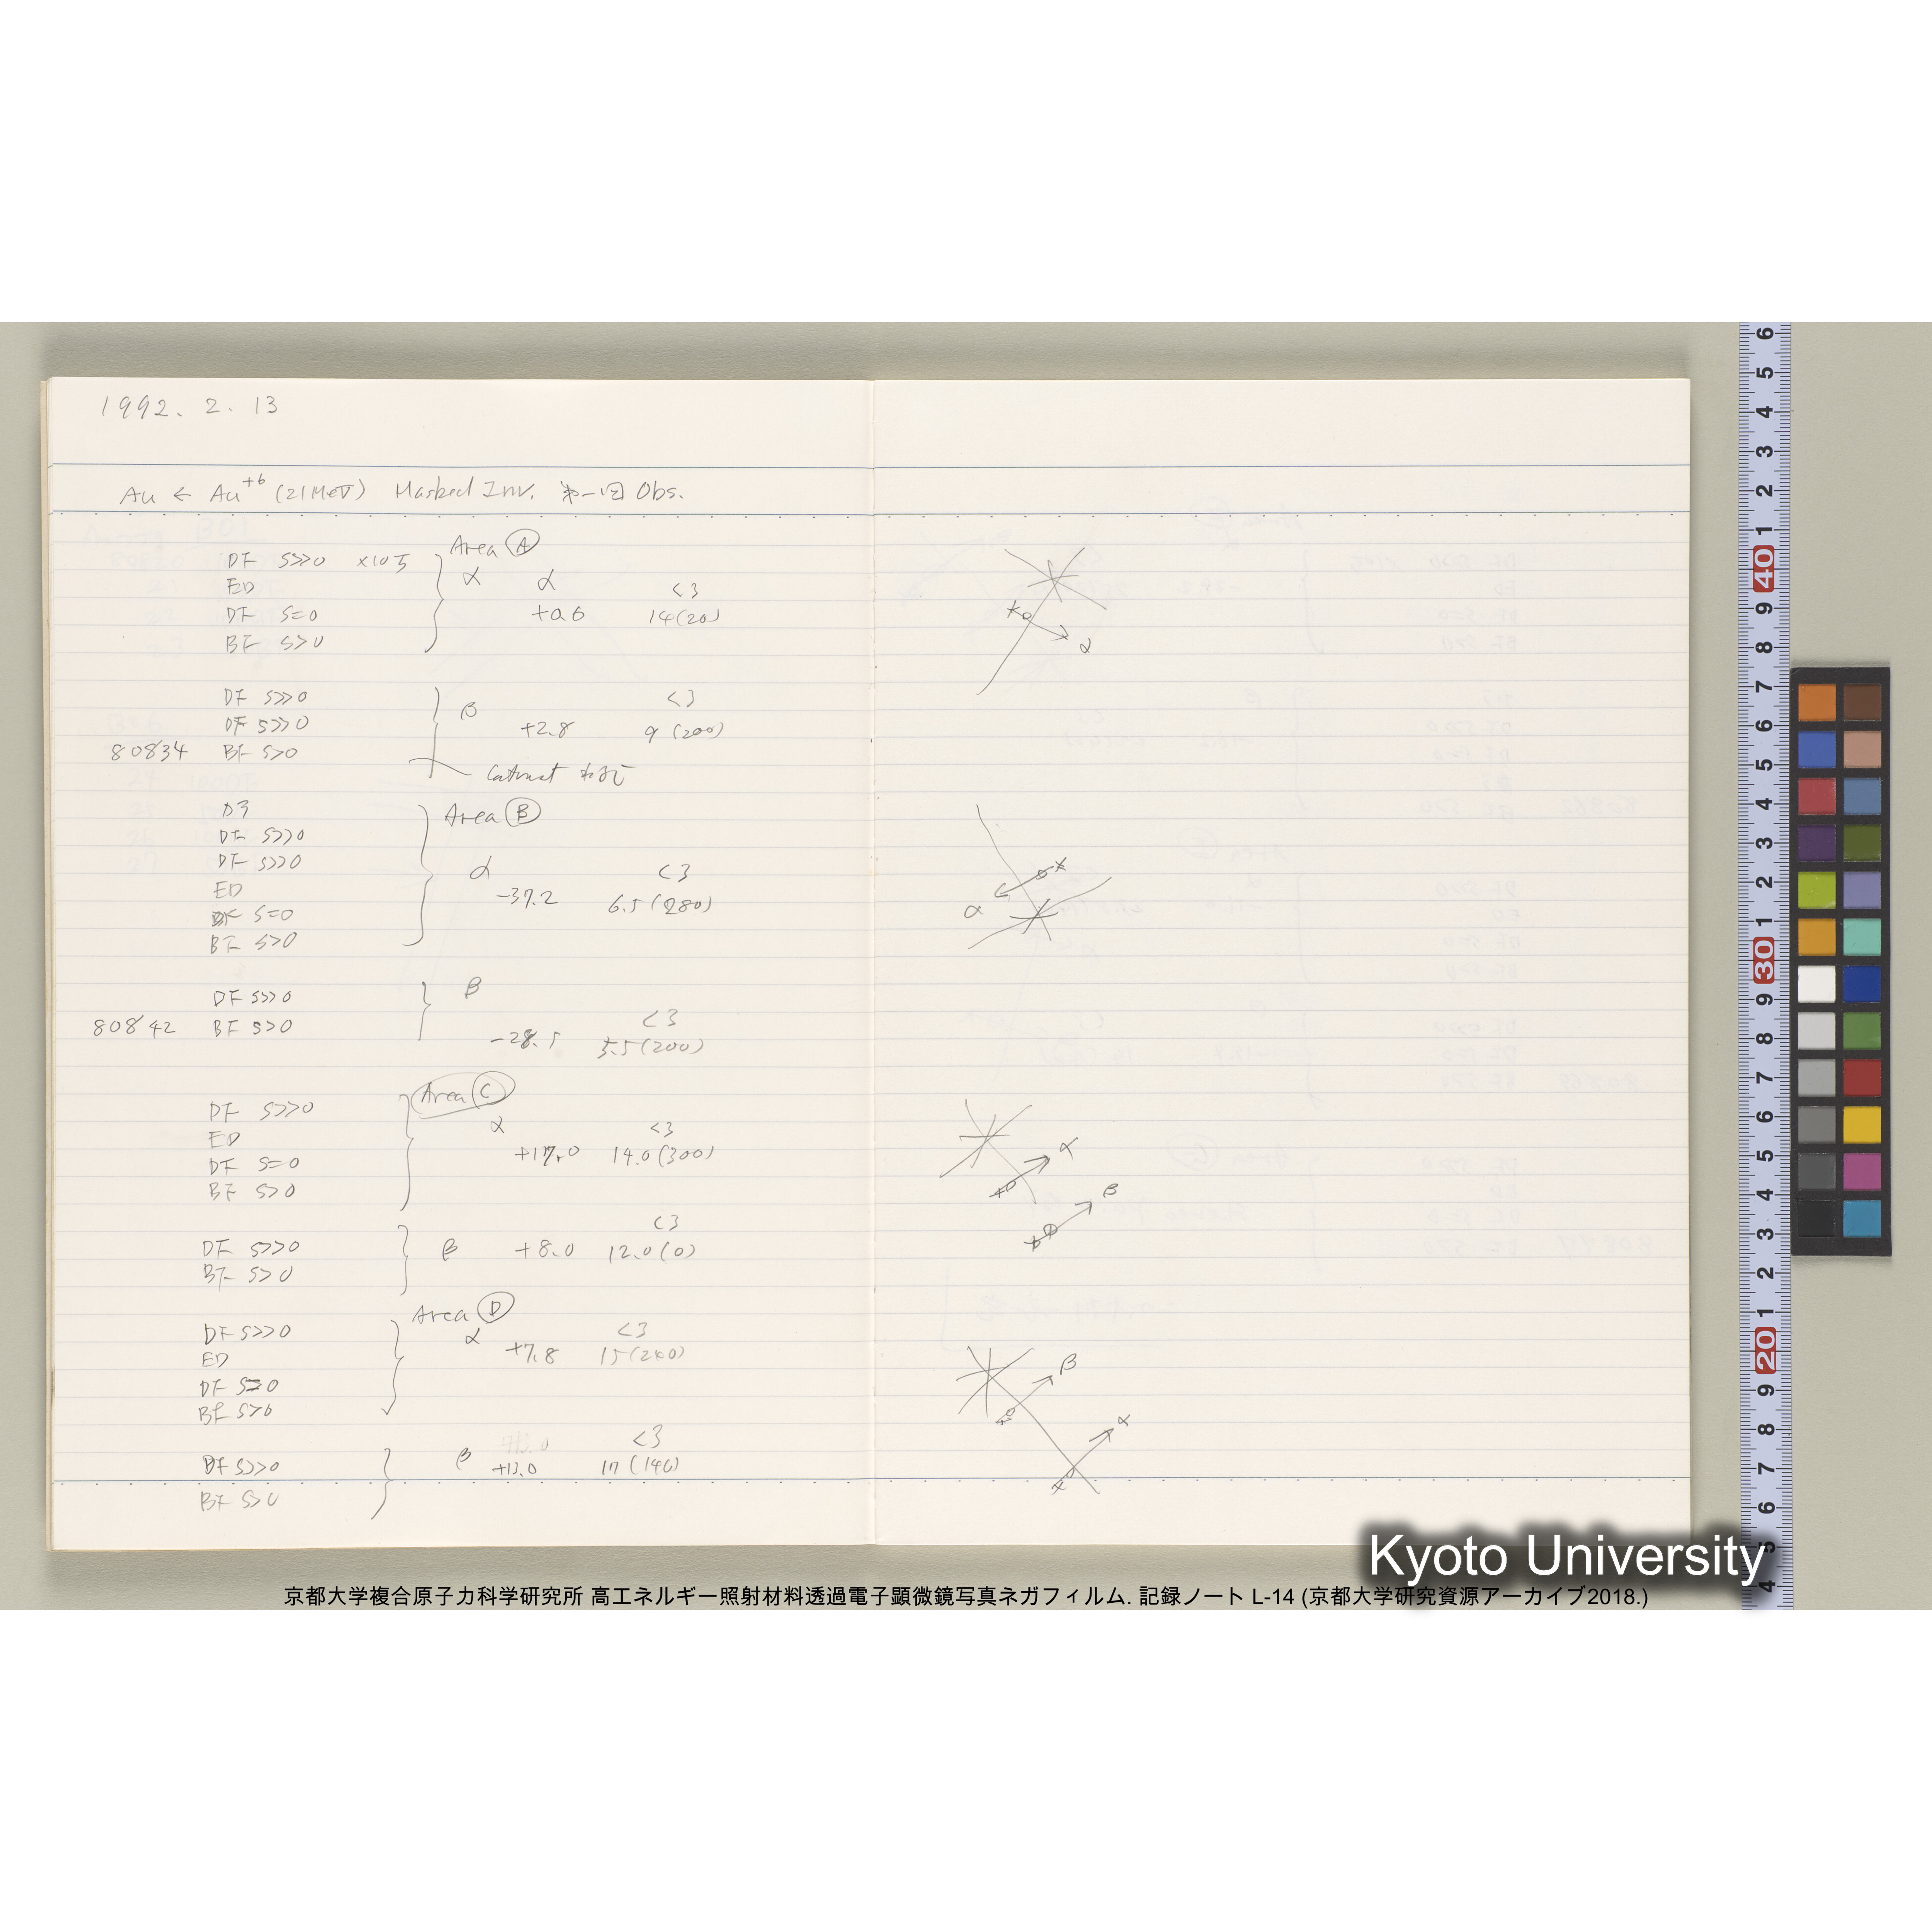 1992. 2. 13
Au ← Au+6 (21MeV) Masked Irr. 第一回 Obs.
Area A
DF S>>0 ×10万 α α
ED <3
DF S=0 +0.6 14(20)
BF S>0
α
DF S>>0 <3
DF S>>0 β +2.8 9 (200)
80834 BF S>0
Contrast
Area B
DF S>>0
DF S>>0 α <3
ED -37.2 6.5 (280)
DF S=0
BF S>0
α
DF S>>0 β
80842 BF S>0 <3
-28.5 5.5 (200)
Area C
DF S>>0 α <3
ED +17.0 14.0 (300)
DF S=0
BF S>0
α
β
<3
DF S>>0 β +8.0 12.0 (0)
BF S>0
Area D
DF S>>0 α <3
ED +7.8 15 (240)
DF S=0
BF S>0
β
α
<3
DF S>>0 β +13.0 17 (140)
BF S>0
6 5 4 3 2 1 40 9 8 7 6 5 4 3 2 1 30 9 8 7 6 5 4 3 2 1 20 9 8 7 6 5 4
Kyoto University
京都大学複合原子力科学研究所 高エネルギー照射材料透過電子顕微鏡写真ネガフィルム. 記録ノート L-14 (京都大学研究資源アーカイブ2018.)